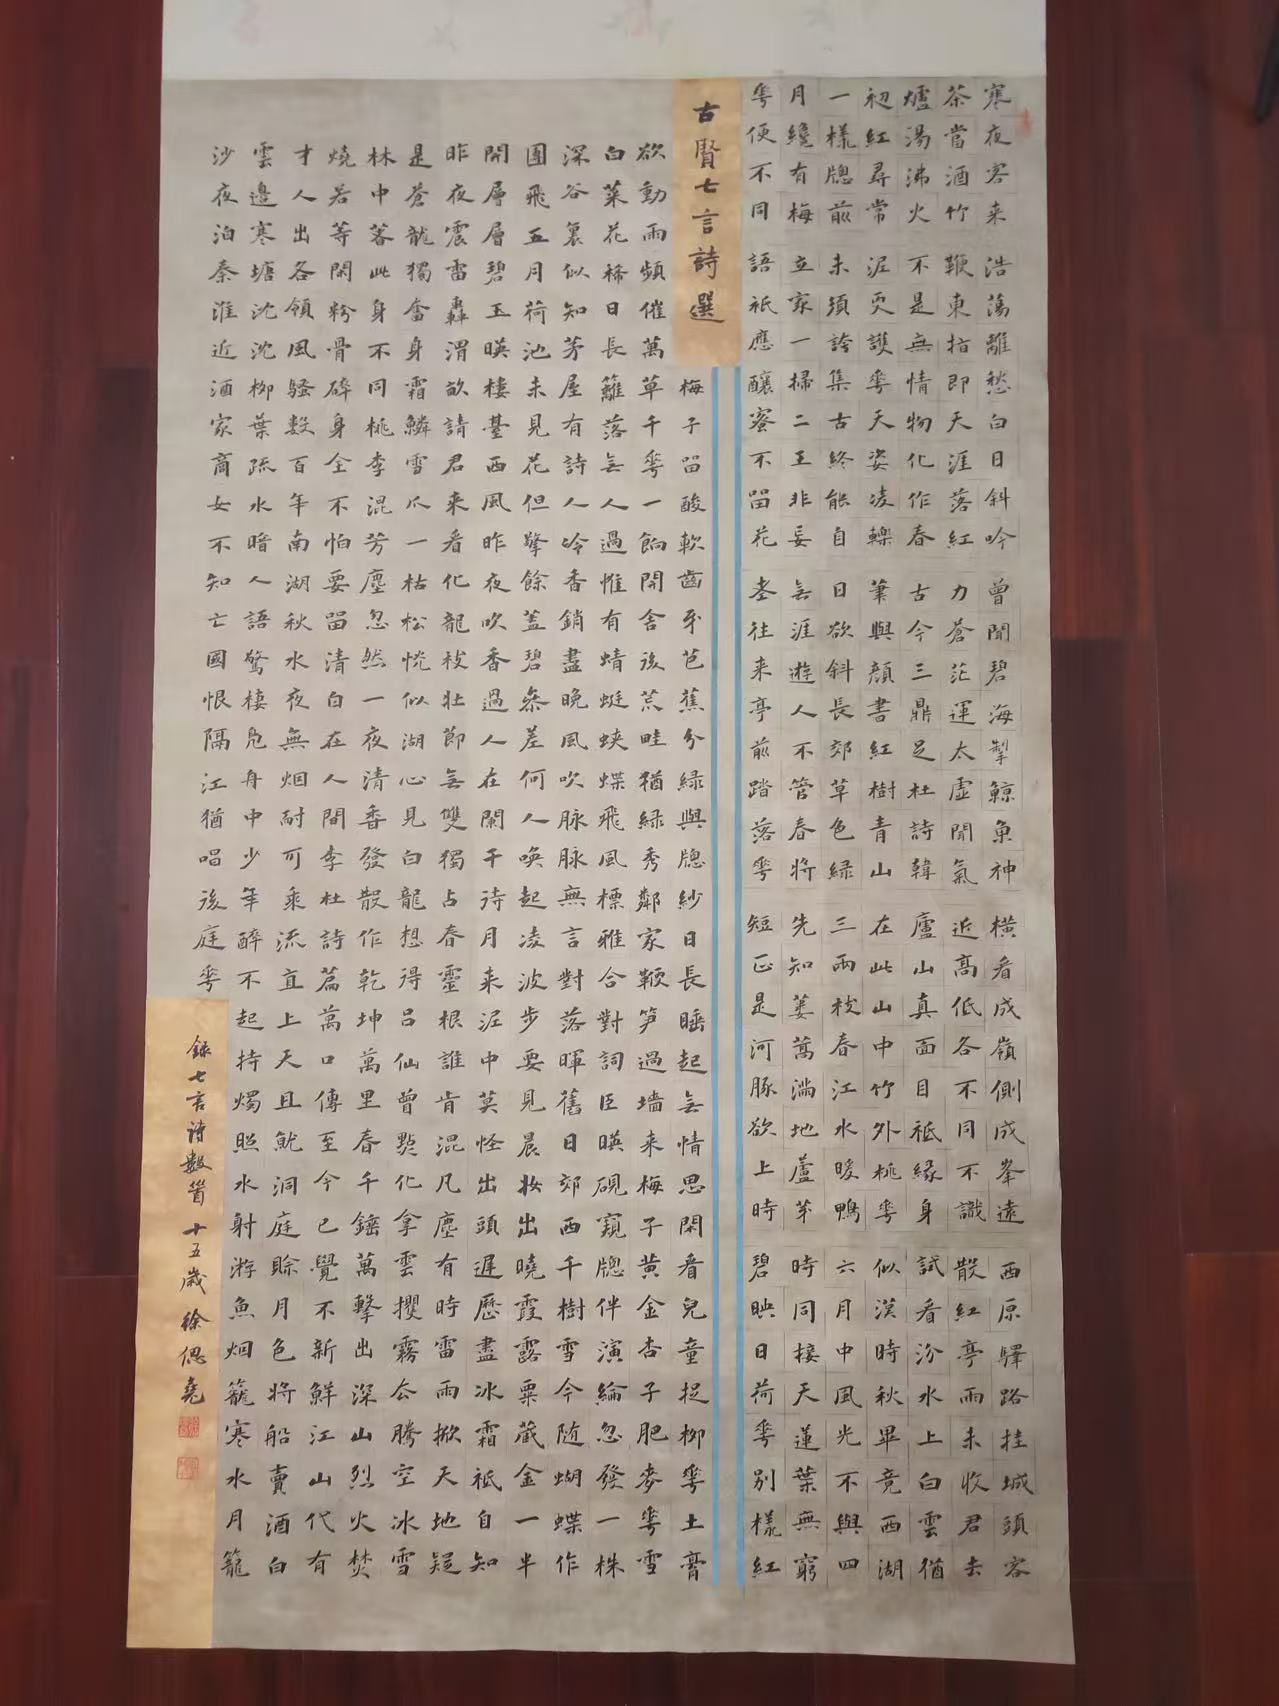 寒夜客来
茶當酒竹
爐湯沸火
初紅尋常
一樣牕前
月纔有梅
華便不同
浩蕩離愁白日斜吟
鞭東指即天涯落紅
不是無情物化作春
泥更護華天姿凌轢
未須誇集古終能自
立家一掃二王非妄
語祇應釀蜜不留花
曾聞碧海掣鯨魚神
力蒼茫運太虛間氣
古今三鼎足杜詩韓
筆與顏書紅樹青山
日欲斜長郊草色綠
無涯遊人不管春將
老往来亭前踏落華
橫看成嶺側成峯遠
近高低各不同不識
廬山真面目祇緣身
在此山中竹外桃華
三兩枝春江水暖鴨
先知蔞蒿滿地蘆芽
短正是河豚欲上時
西原驛路挂城頭客
散紅亭雨未收君去
試看汾水上白雲猶
似漢時秋畢竟西湖
六月中風光不與四
時同接天蓮葉無窮
碧映日荷華別樣紅
古賢七言詩選
梅子留酸軟齒牙芭蕉分綠與牕紗日長睡起無情思閑看兒童捉柳華土膏
欲動雨頻催萬草千華一餉開舍後荒畦猶綠秀鄰家鞭笋過墙来梅子黄金杏子肥麥華雪
白菜花稀日長籬落無人過惟有蜻蜓蛺蝶飛風標雅合對詞臣暎硯窺牕伴演綸忽發一株
深谷裏似知茅屋有詩人冷香銷盡晚風吹脉脉無言對落暉舊日郊西千樹雪今隨蝴蝶作
團飛五月荷池未見花但擎餘蓋碧參差何人喚起凌波步要見晨妝出曉霞露粟藏金一半
開層層碧玉暎樓臺西風昨夜吹香過人在闌干待月来泥中莫怪出頭遲歷盡冰霜祇自知
昨夜震雷轟渭畝請君来看化龍枝壯節無雙獨占春靈根誰肯混凡塵有時雷雨掀天地疑
是蒼龍獨奮身霜鱗雪爪一枯松恍似湖心見白龍想得呂仙曾點化拿雲攫霧騰空冰雪
林中著此身不同桃李混芳塵忽然一夜清香發散作乾坤萬里春千錘萬擊出深山烈火焚
燒若等閑粉骨碎身全不怕要留清白在人間李杜詩篇萬口傳至今已覺不新鮮江山代有
才人出各領風騷數百年南湖秋水夜無烟耐可乘流直上天且就洞庭賒月色將船賣酒白
雲邊寒塘沈沈柳葉疏水暗人語驚棲鳧舟中少年醉不起持燭照水射游魚烟籠寒水月籠
沙夜泊秦淮近酒家商女不知亡國恨隔江猶唱後庭華
錄七言詩數首 十五歲 徐偲堯